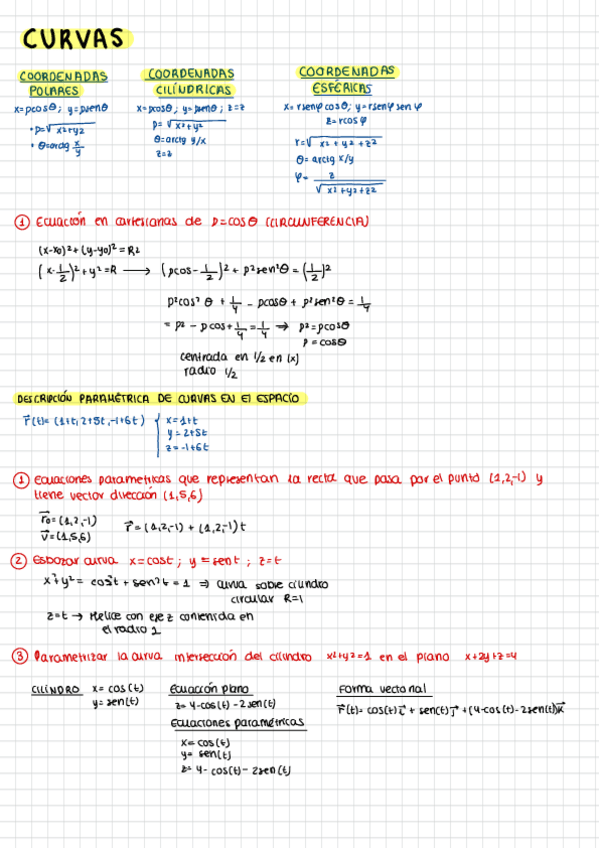 CURVAS
COORDENADAS POLARES
x=ρcosθ; y=ρsenθ
• ρ=√x²+y²
• θ=arctg x/y
COORDENADAS CILÍNDRICAS
x=ρcosθ; y=ρsenθ; z=z
ρ=√x²+y²
θ=arctg y/x
z=z
COORDENADAS ESFÉRICAS
x=rsenφcosθ; y=rsenφsenφ
z=rcosφ
r=√x²+y²+z²
θ=arctg x/y
φ= z/√x²+y²+z²
① Ecuación en cartesianas de ρ=cosθ (CIRCUNFERENCIA)
(x-x0)²+(y-y0)²=R²
(x-1/2)²+y²=R → (ρcos-1/2)²+ρ²sen²θ=(1/2)²
ρ²cos²θ+1/4-ρcosθ+ρ²sen²θ=1/4
=ρ²-ρcos+1/4=1/4 → ρ²=ρcosθ
ρ=cosθ
centrada en 1/2 en (x)
radio 1/2
DESCRIPCIÓN PARAMÉTRICA DE CURVAS EN EL ESPACIO
r(t)=(1+t, 2+5t, -1+6t)
x=1+t
y=2+5t
z=-1+6t
① Ecuaciones parametricas que representan la recta que pasa por el punto (1,2,-1) y
tiene vector dirección (1,5,6)
r0=(1,2,-1)
v=(1,5,6)
r=(1,2,-1)+(1,2,-1)t
② Esbozar curva x=cost; y=sent; z=t
x²+y²=cos²t+sen²t=1 ⇒ curva sobre cilindro
circular R=1
z=t → Helice con eje z contenida en
el radio 1
③ Parametrizar la curva intersección del cilindro x²+y²=1 en el plano x+2y+z=4
CILINDRO
x=cos(t)
y=sen(t)
Ecuación plano
z=4-cos(t)-2sen(t)
Ecuaciones paramétricas
x=cos(t)
y=sen(t)
z=4-cos(t)-2sen(t)
Forma vectorial
r(t)=cos(t)i+sen(t)j+(4-cos(t)-2sen(t))k